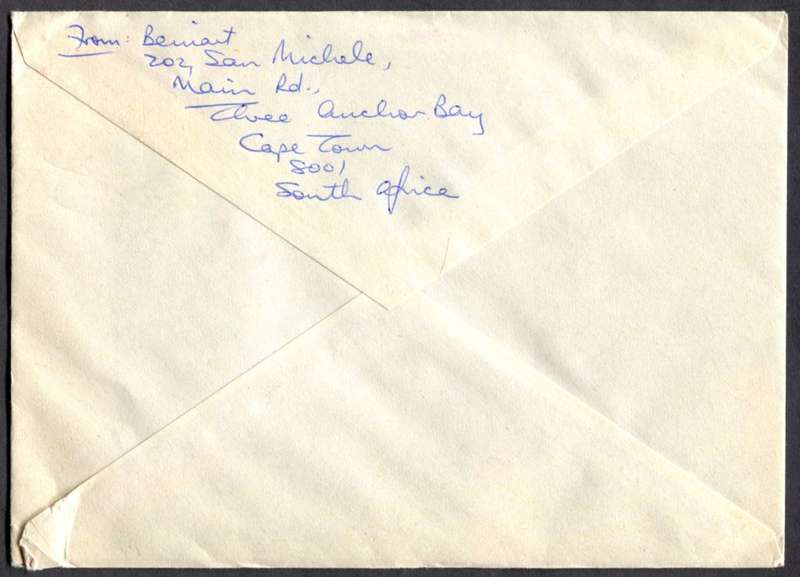 From: Beinart
202, San Michele,
Main Rd.,
Three Anchor Bay
Cape Town
8001
South Africa